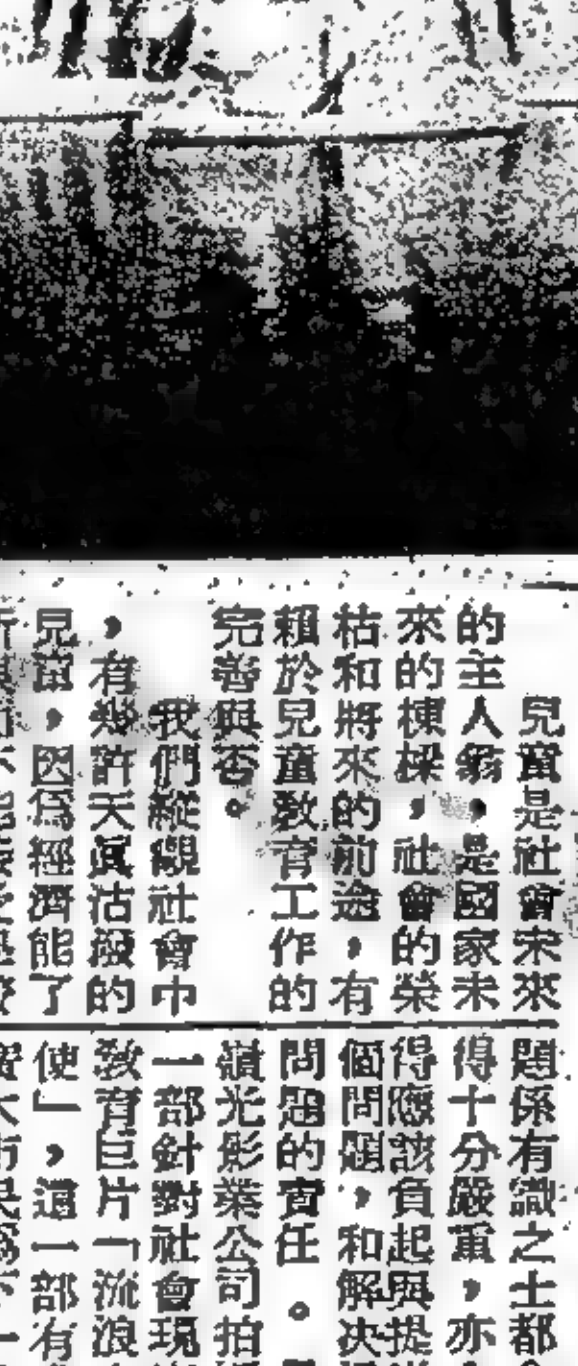 兒童是社會未來
的主人翁，是國家未
來的棟樑，社會的榮
枯和將來的前途，有
賴於兒童敎育工作的
完善與否。
我們縱觀社會中
，有幾許天眞活潑的
見童，因爲經濟能了
題係有識之士都
得十分嚴重，亦
得應該負起與提
個問題，和解决
問題的責任。
嶺光影業公司拍
一部針對社會現
敎育巨片「流浪
使」，這一部有